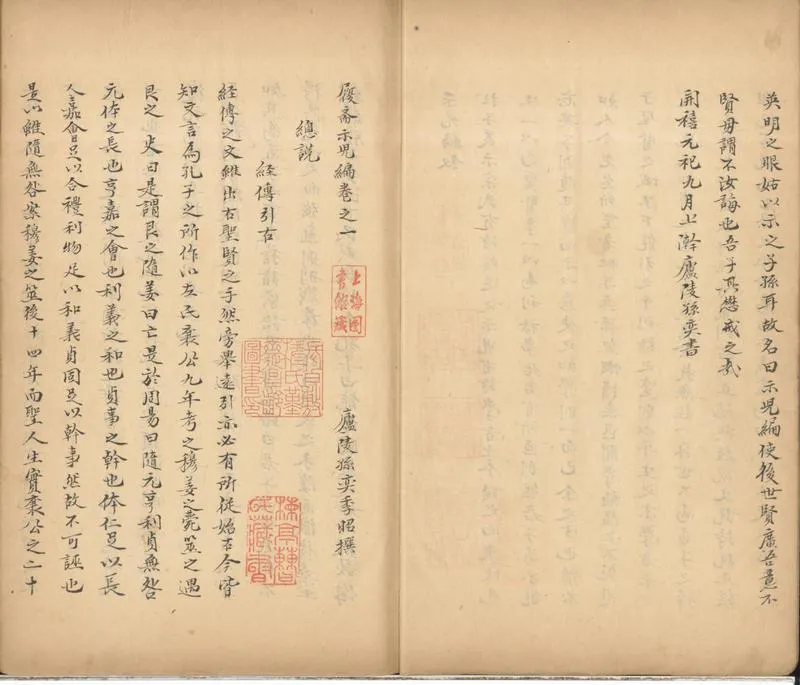 英明之眼姑以示之子孫耳故名曰示児編使後世賢廣吾意不
賢毋謂不汝誨也吾子其懋戒之哉
開禧元祀九月上澣廬陵孫奕書
履齋示児編卷之一
上海圖書館藏
廬陵孫奕季昭撰
總説
經傳引古
經傳之文雖出古聖賢之手然旁舉遠引亦必有所從始古今皆
知文言為孔子之所作以左氏襄公九年考之穆姜之薨筮之遇
艮之 史曰是謂艮之隨姜曰亡是於周昜曰隨元亨利貞無咎
元体之長也亨嘉之會也利義之和也貞事之幹也体仁足以長
人嘉會足以合禮利物足以和義貞固足以幹事然故不可誣也
是以雖隨無咎案穆姜之筮後十四年而聖人生實襄公之二十
楝亭曹氏藏書